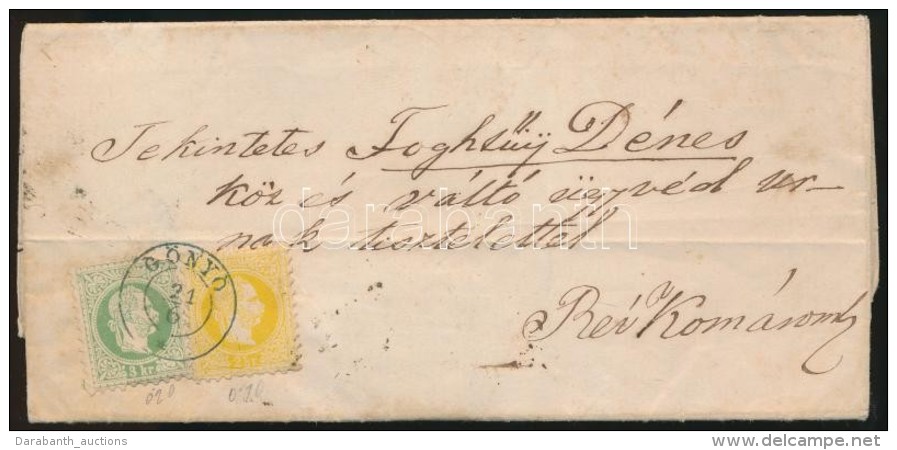 Tekintetes Foghtüy Dénes
köz és váltó ügyvéd ur–
nak tisztelettel
Rév Komárom
GÖNYÖ
21
6
3 kr
2 kr
darabanth
Darabanth_auctions
www.delcampe.net